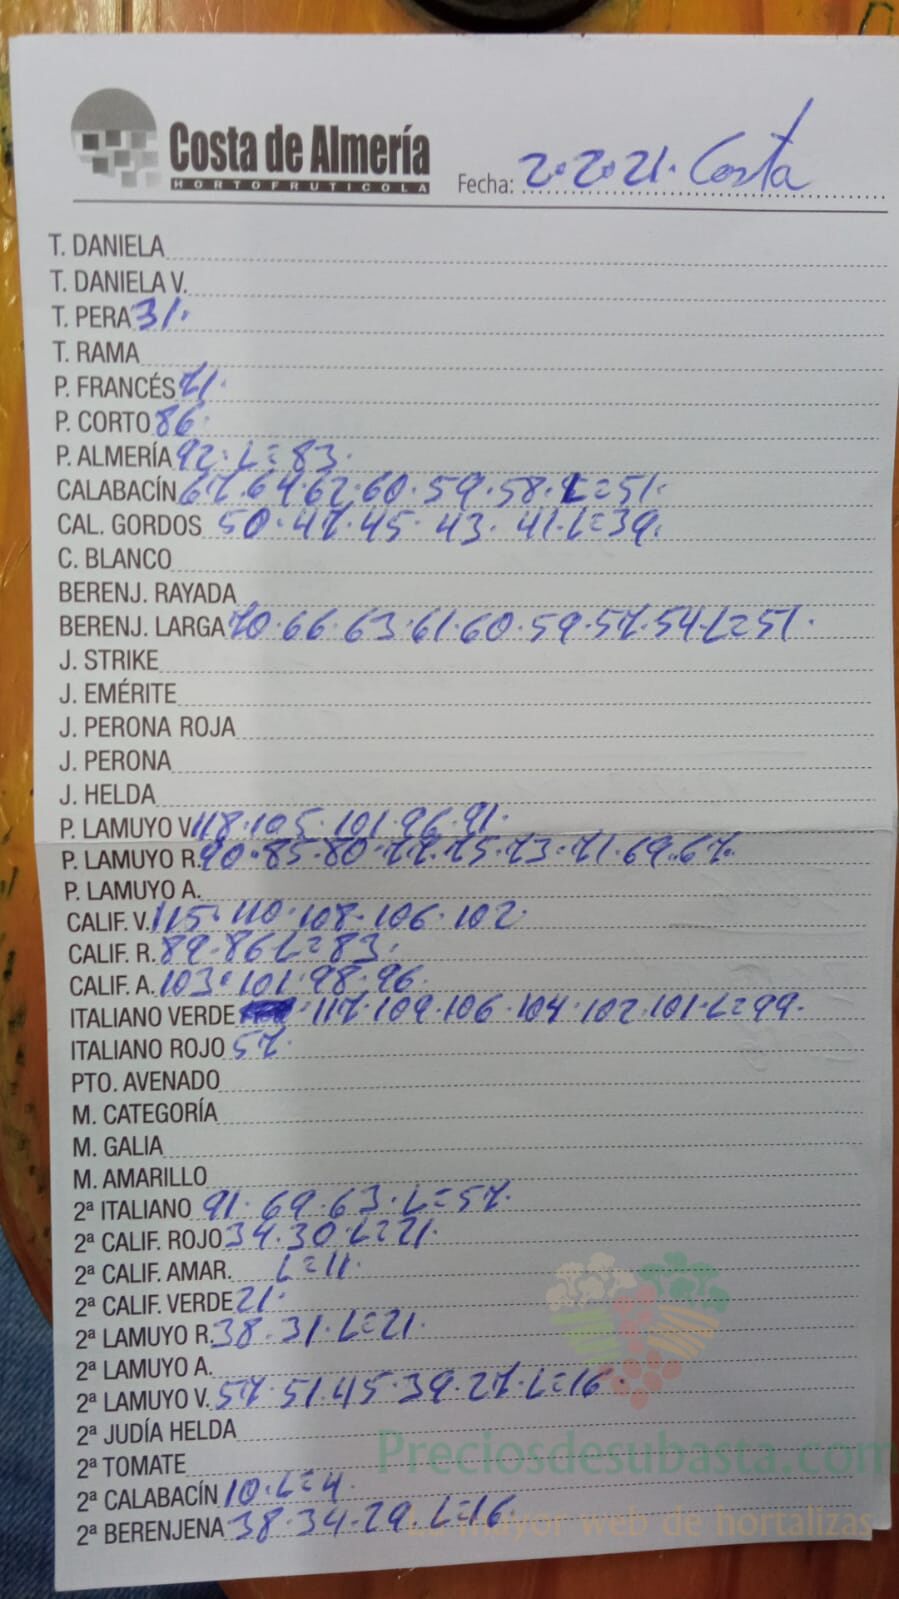 Costa de Almería
HORTOFRUTICOLA
Fecha: 2.2.21. Costa
T. DANIELA
T. DANIELA V.
T. PERA 31.
T. RAMA
P. FRANCÉS 71.
P. CORTO 86.
P. ALMERÍA 92. L=83.
CALABACÍN 67.64.62.60.59.58.L=51.
CAL. GORDOS 50.47.45.43.41.L=39.
C. BLANCO
BERENJ. RAYADA
BERENJ. LARGA 70.66.63.61.60.59.57.54.L=51.
J. STRIKE
J. EMÉRITE
J. PERONA ROJA
J. PERONA
J. HELDA
P. LAMUYO V. 118.105.101.96.91.
P. LAMUYO R. 90.85.80.77.75.73.71.69.67.
P. LAMUYO A.
CALIF. V. 115.110.108.106.102.
CALIF. R. 89.86 L=83.
CALIF. A. 103.101.98.96.
ITALIANO VERDE 117.109.106.104.102.101.L=99.
ITALIANO ROJO 57.
PTO. AVENADO
M. CATEGORÍA
M. GALIA
M. AMARILLO
2ª ITALIANO 91.69.63.L=57.
2ª CALIF. ROJO 34.30.L=21.
2ª CALIF. AMAR. L=11.
2ª CALIF. VERDE 21.
2ª LAMUYO R. 38.31.L=21.
2ª LAMUYO A.
2ª LAMUYO V. 57.51.45.39.27.L=16.
2ª JUDÍA HELDA
2ª TOMATE
Preciosdesubasta.com
2ª CALABACÍN 10.L=4.
2ª BERENJENA 38.34.29.L=16.
La mayor web de hortalizas